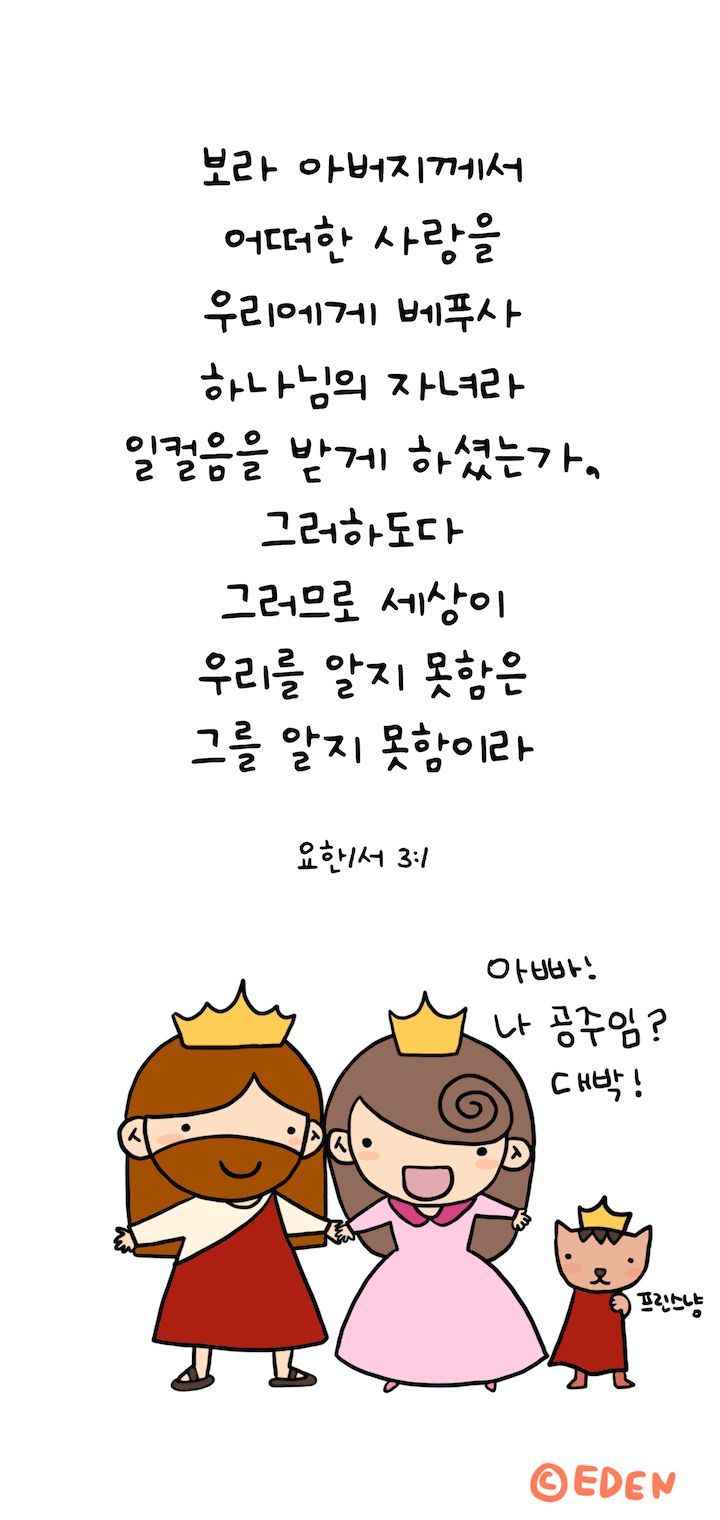 보라 아버지께서
어떠한 사랑을
우리에게 베푸사
하나님의 자녀라
일컬음을 받게 하셨는가,
그러하도다
그러므로 세상이
우리를 알지 못함은
그를 알지 못함이라
요한1서 3:1
아빠!
나 공주임?
대박!
프린스냥
©EDEN